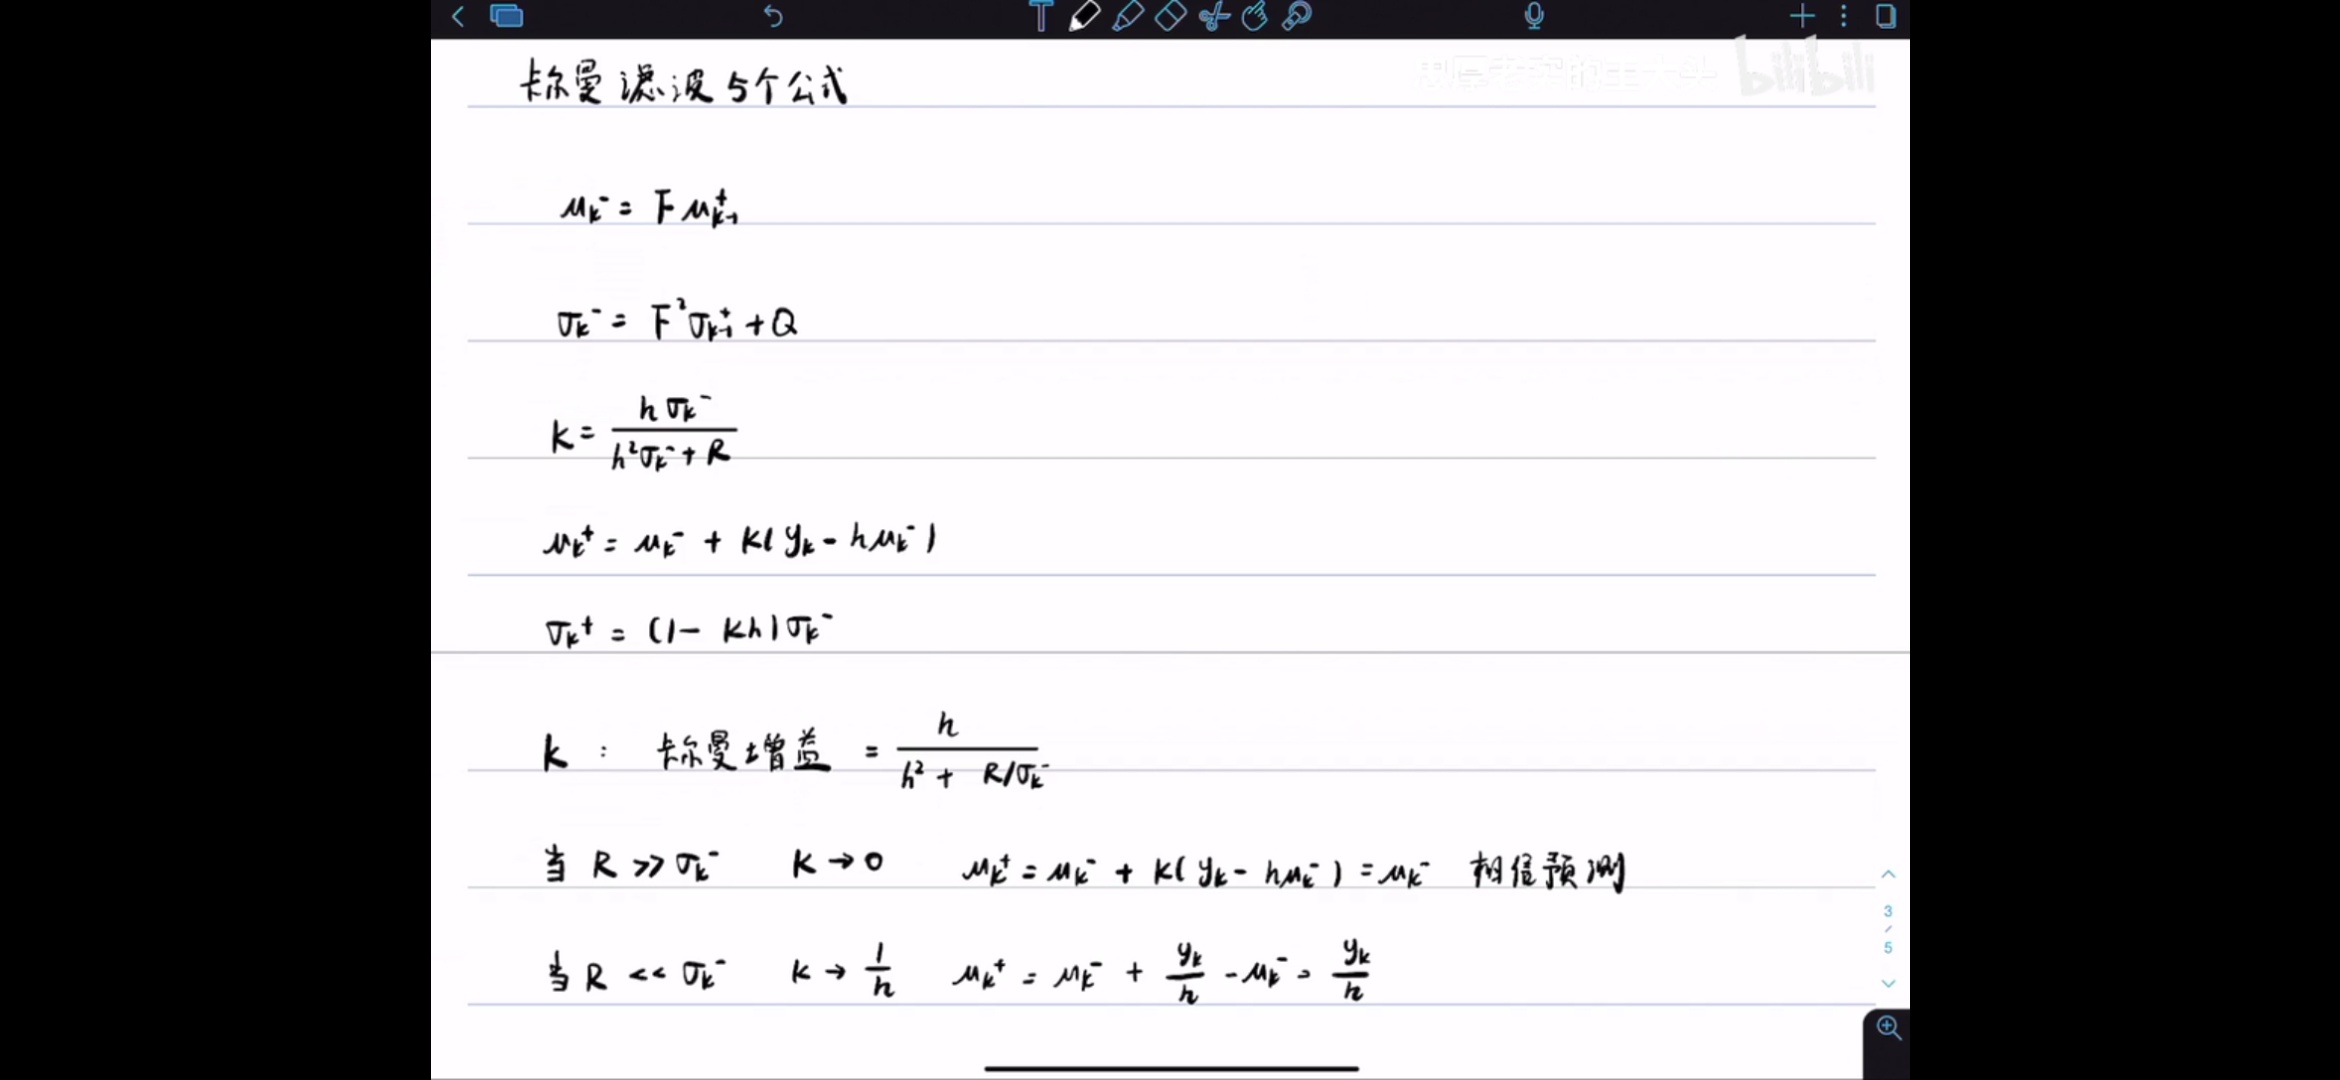 卡尔曼滤波5个公式
bilibili
μₖ⁻ = Fμₖ₋₁⁺
σₖ⁻ = F²σₖ₋₁⁺ + Q
K = hσₖ⁻ / (h²σₖ⁻ + R)
μₖ⁺ = μₖ⁻ + K(yₖ - hμₖ⁻)
σₖ⁺ = (1 - Kh)σₖ⁻
K : 卡尔曼增益 = h / (h² + R/σₖ⁻)
当 R >> σₖ⁻ K → 0 μₖ⁺ = μₖ⁻ + K(yₖ - hμₖ⁻) = μₖ⁻ 相信预测
当 R << σₖ⁻ K → 1/h μₖ⁺ = μₖ⁻ + yₖ/h - μₖ⁻ = yₖ/h
3/5